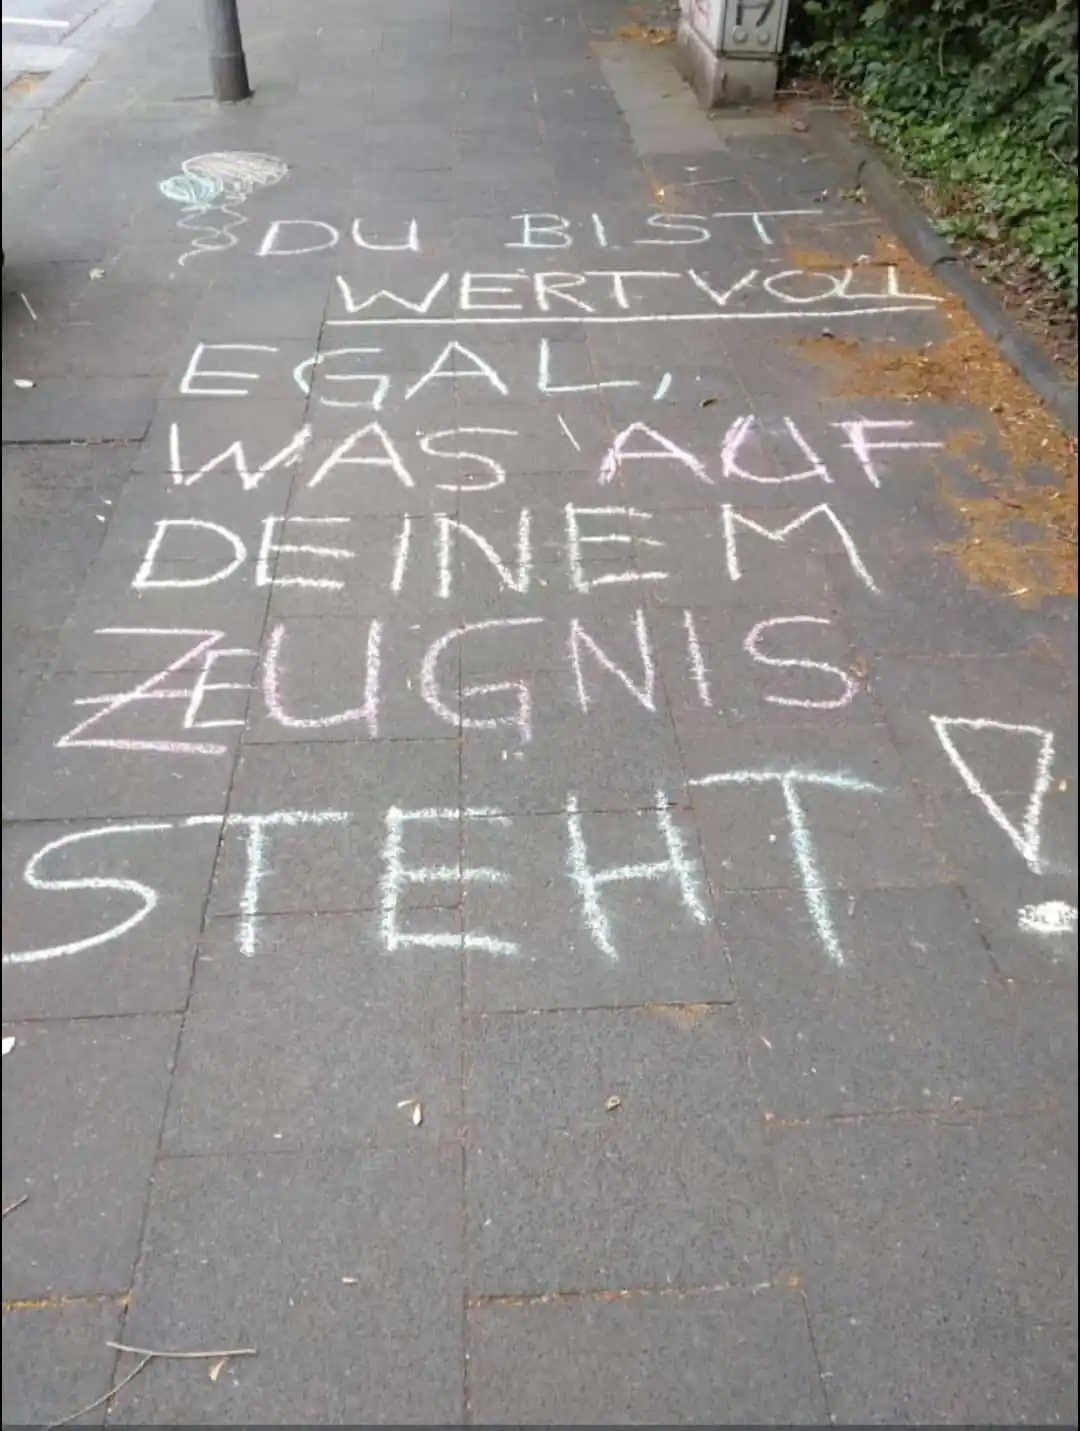 DU BIST
WERTVOLL
EGAL,
WAS AUF
DEINEM
ZEUGNIS
STEHT!